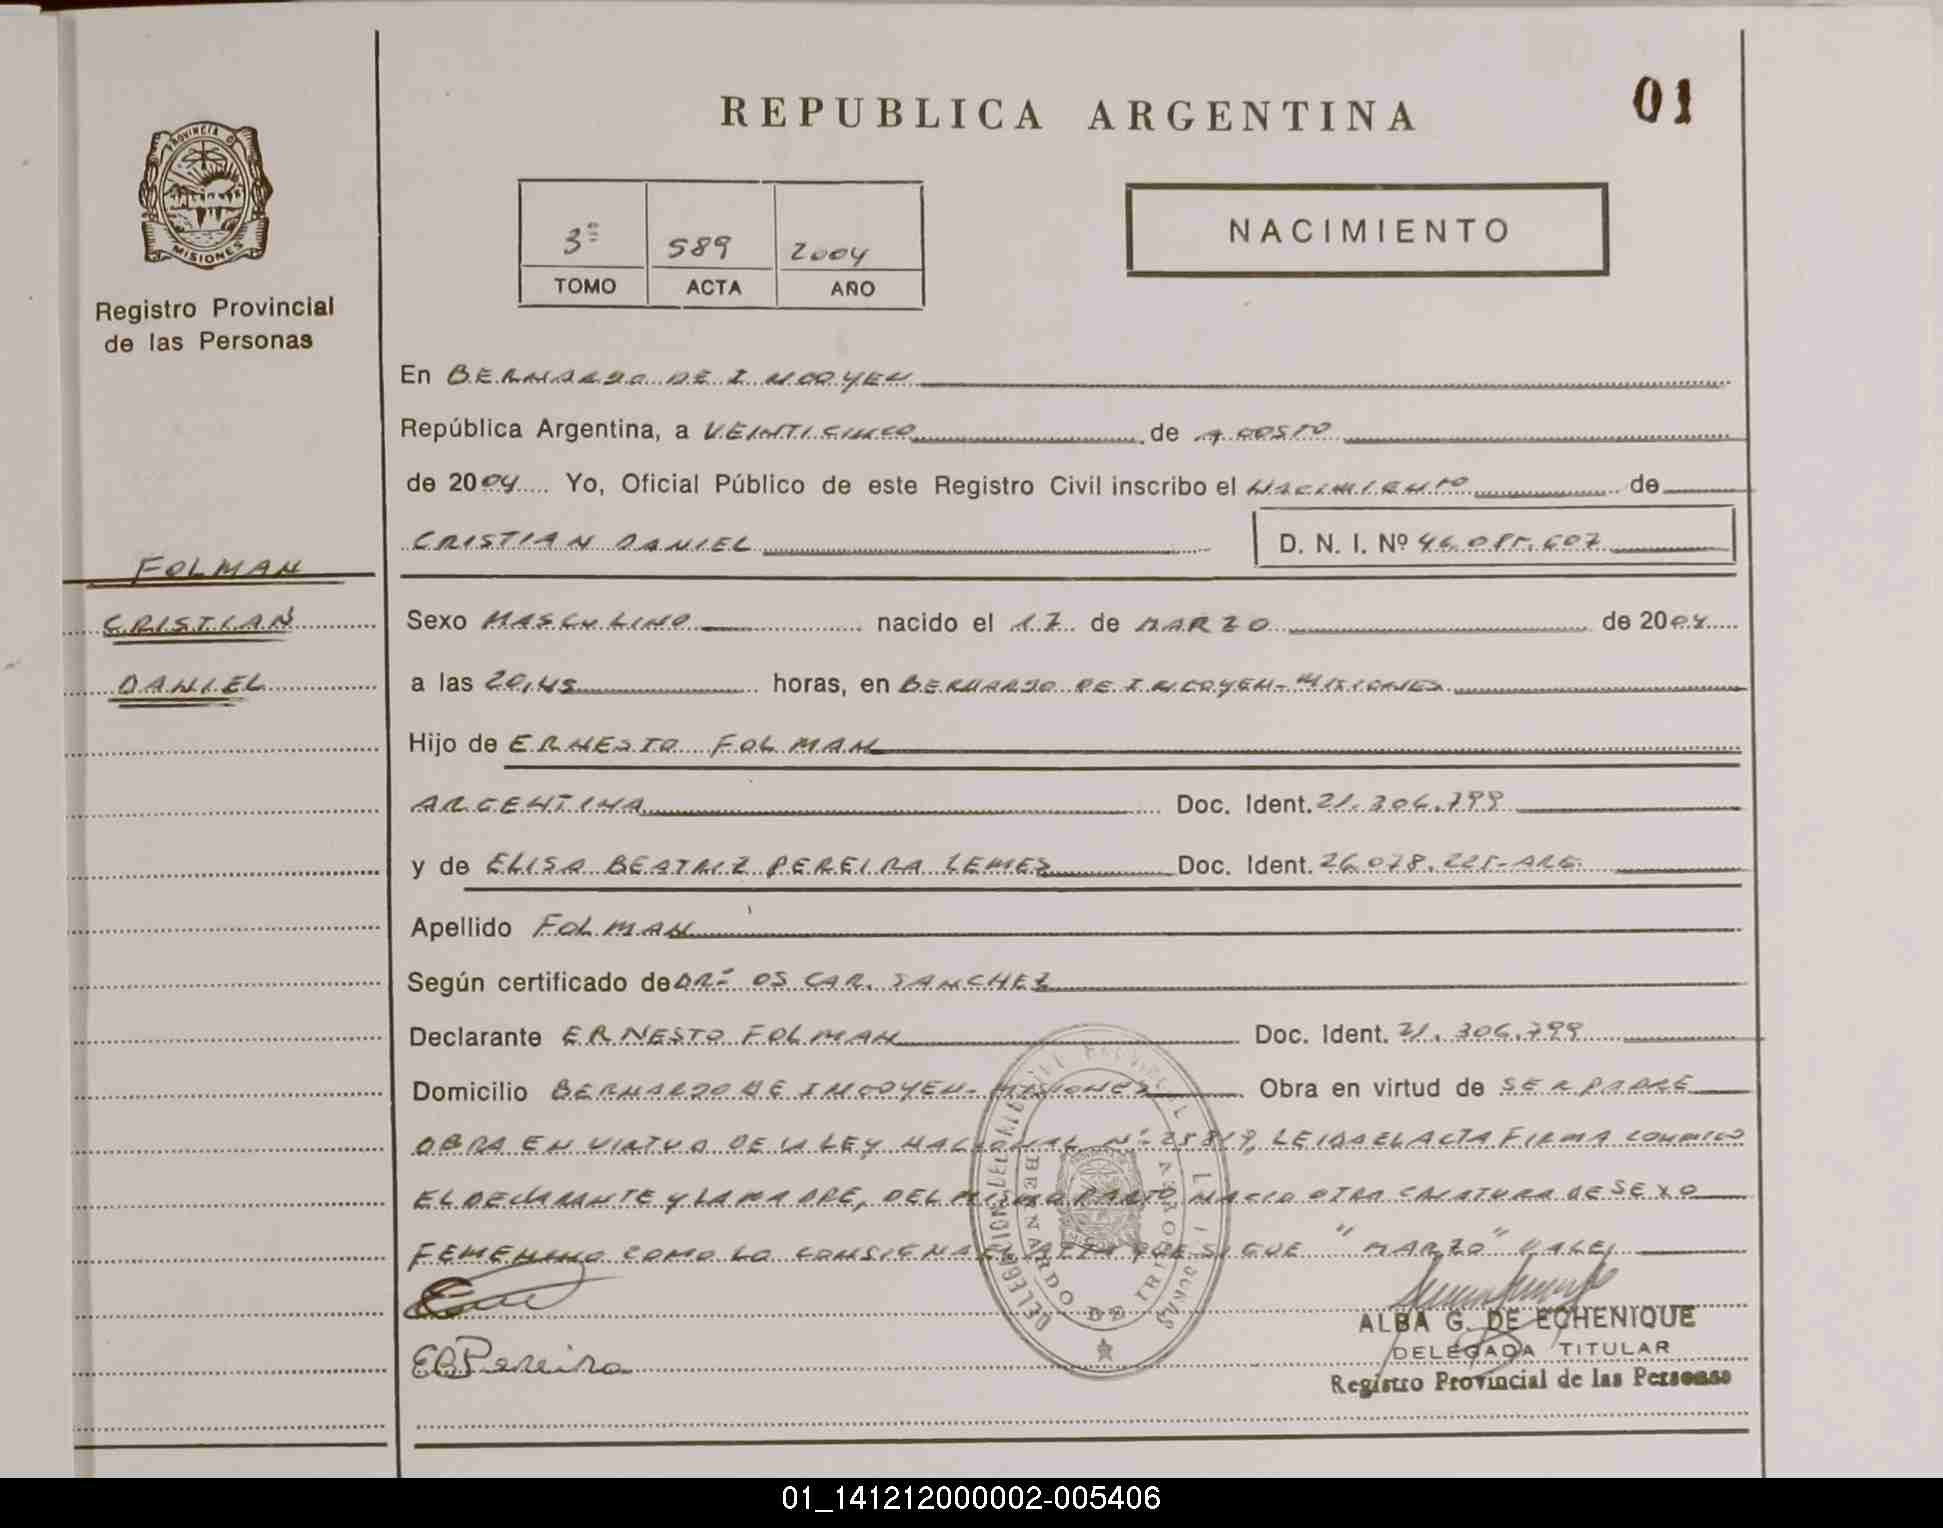 REPUBLICA ARGENTINA
01
PROVINCIA D
MISIONES
Registro Provincial
de las Personas
3º 589 2004
TOMO ACTA AÑO
NACIMIENTO
En BERNARDO DE IRIGOYEN
República Argentina, a VEINTICINCO de AGOSTO
de 2004 Yo, Oficial Público de este Registro Civil inscribo el NACIMIENTO de
CRISTIAN DANIEL D. N. I. Nº 46.085.607
FOLMAN
CRISTIAN
DANIEL
Sexo MASCULINO nacido el 17 de MARZO de 2004
a las 20,45 horas, en BERNARDO DE IRIGOYEN-MISIONES
Hijo de ERNESTO FOLMAN
ARGENTINA Doc. Ident. 21.306.799
y de ELISA BEATRIZ PEREIRA LEMES Doc. Ident. 26.078.225-ARG.
Apellido FOLMAN
Según certificado de DR. OSCAR SANCHEZ
Declarante ERNESTO FOLMAN Doc. Ident. 21.306.799
Domicilio BERNARDO DE IRIGOYEN-MISIONES Obra en virtud de SER PADRE
OBRA EN VIRTUD DE LA LEY NACIONAL Nº 25819, LEIDA EL ACTA FIRMA CONMIGO
EL DECLARANTE Y LA MADRE, DEL MISMO PARTO NACIO OTRA CRIATURA DE SEXO
FEMENINO COMO LO CONSIGNA EL ACTA QUE SIGUE "MARZO" VALE
EBPereira
BERNARDO DE IRIGOYEN
ALBA G. DE ECHENIQUE
DELEGADA TITULAR
Registro Provincial de las Personas
01_141212000002-005406